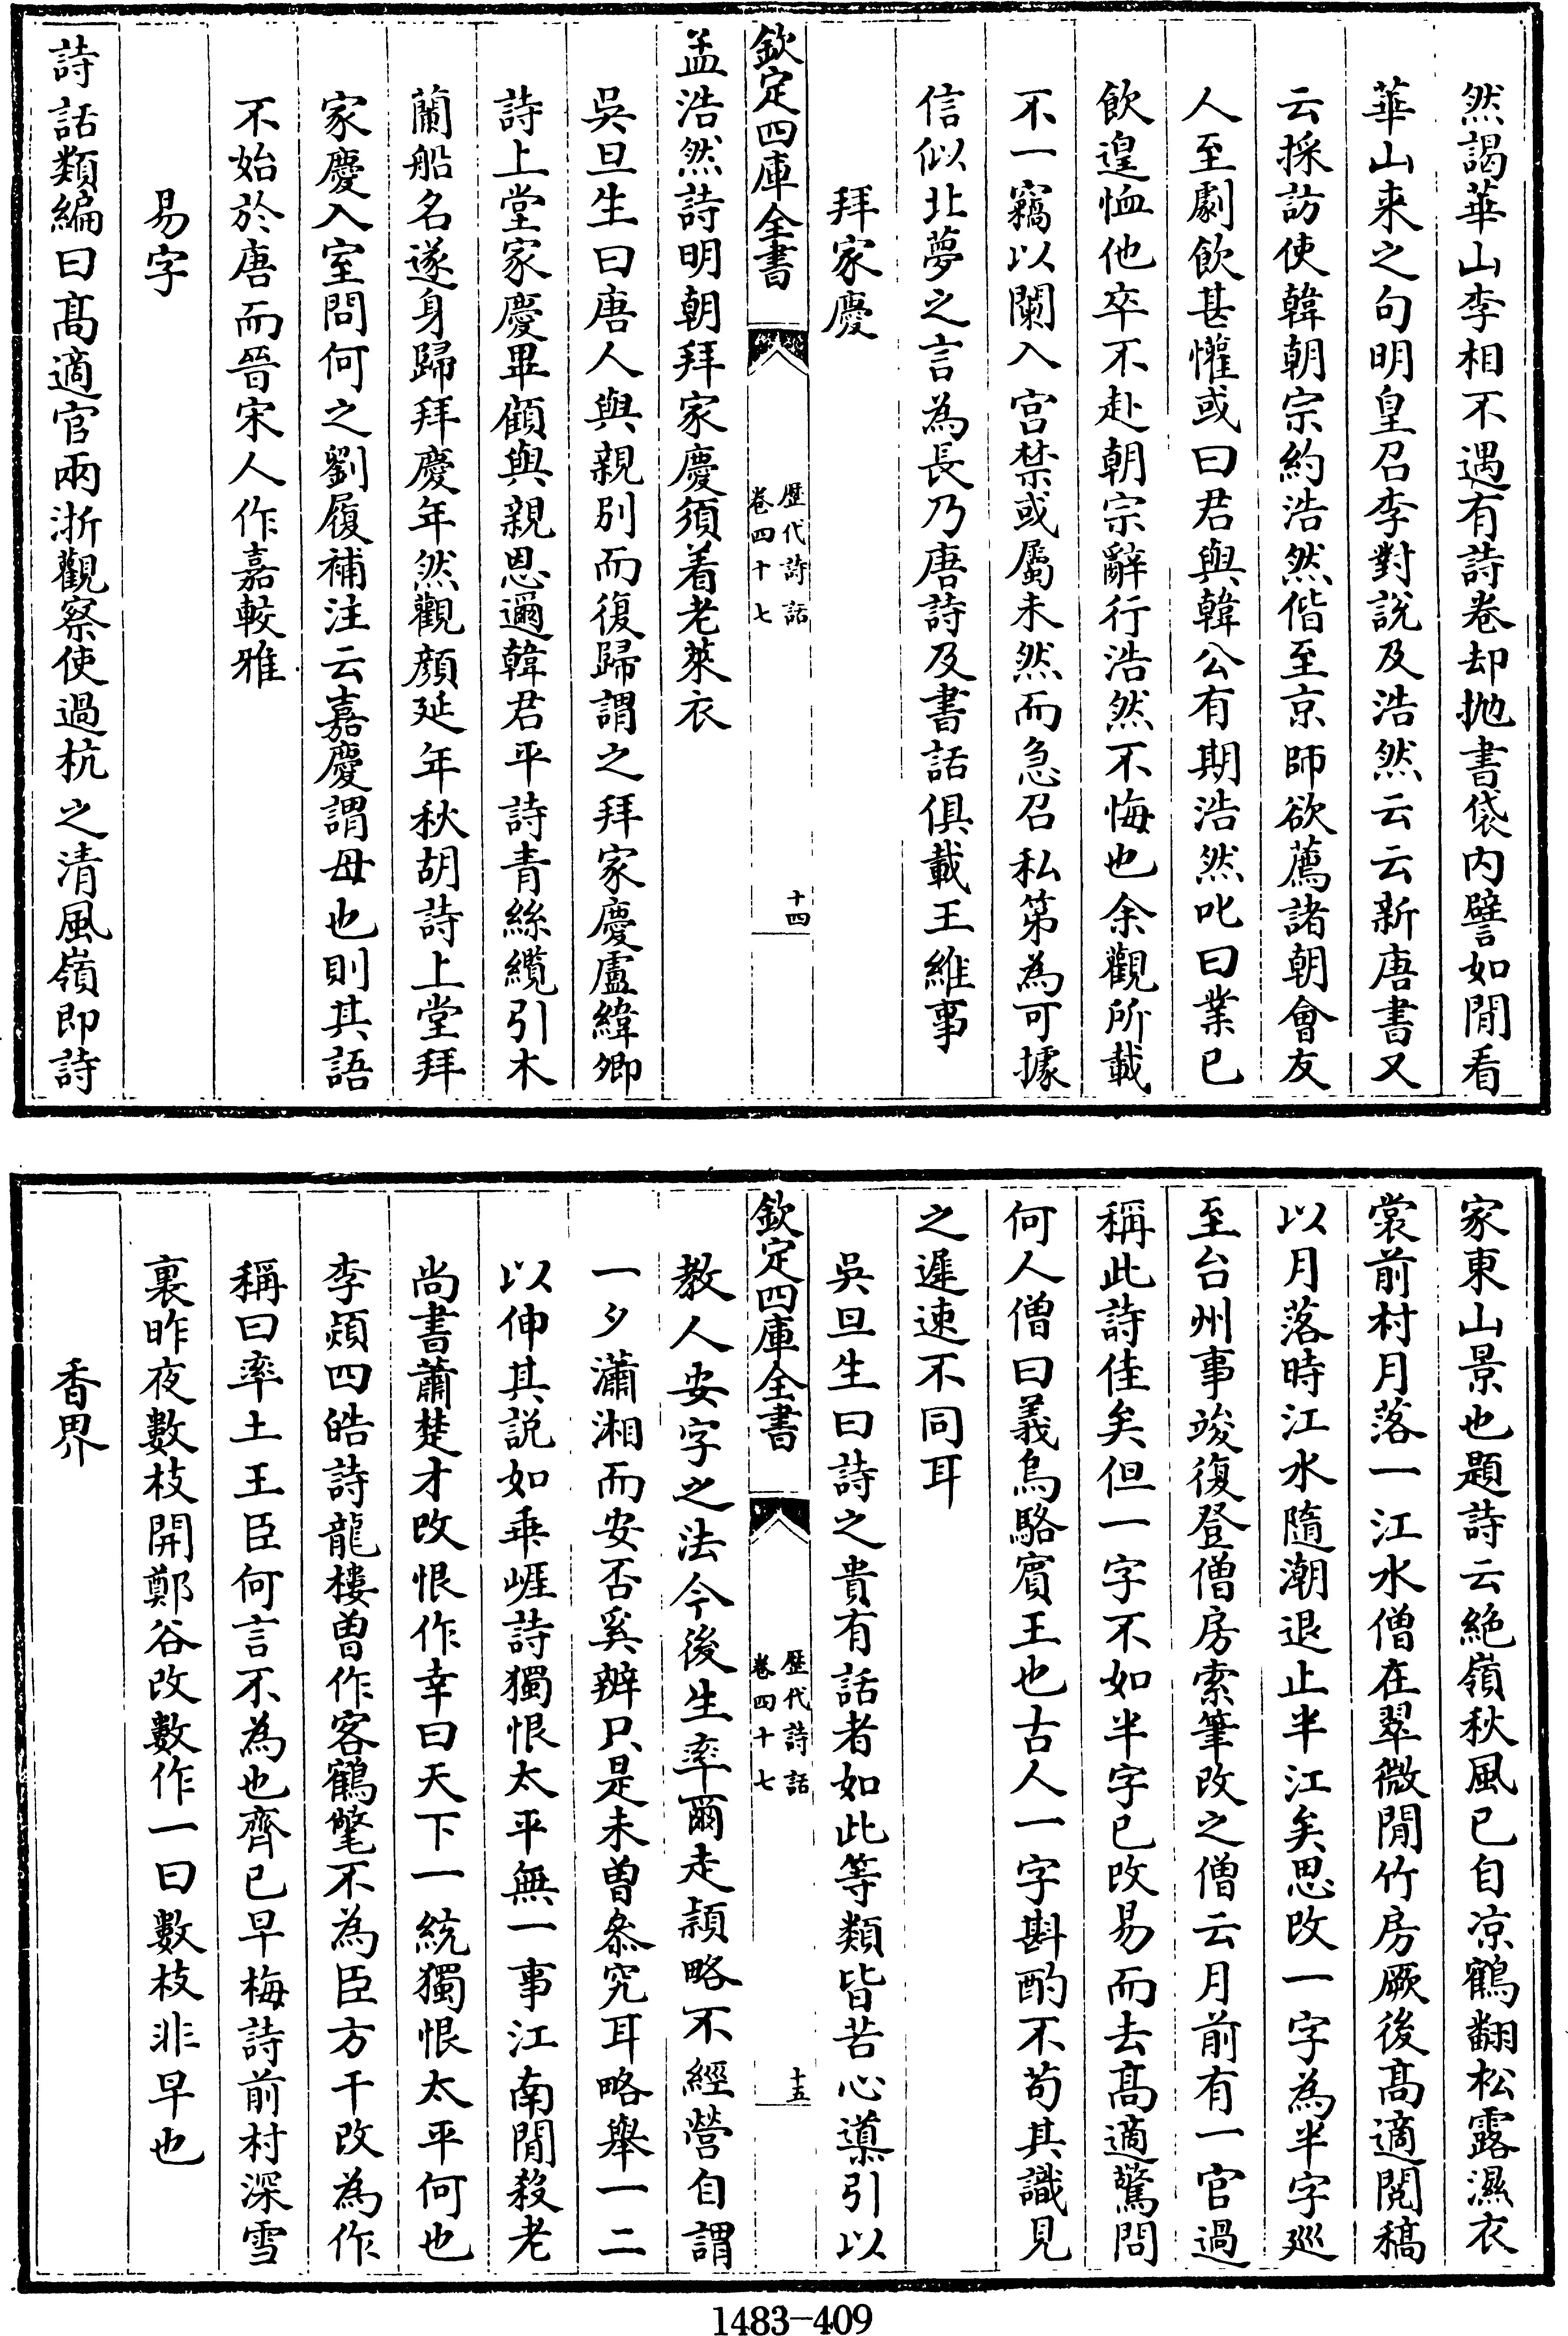 然謁華山李相不遇有詩卷却抛書袋内譬如閒看
華山来之句明皇召李對說及浩然云云新唐書又
云採訪使韓朝宗約浩然偕至京師欲薦諸朝會友
人至劇飲甚懽或曰君與韓公有期浩然叱曰業已
飲遑恤他卒不赴朝宗辭行浩然不悔也余觀所載
不一竊以闌入宫禁或屬未然而急召私第為可據
信似北夢之言為長乃唐詩及書話俱載王維事
拜家慶
欽定四庫全書
歴代詩話
卷四十七
十四
孟浩然詩明朝拜家慶須着老萊衣
吳旦生曰唐人與親別而復歸謂之拜家慶盧緯卿
詩上堂家慶畢顧與親恩邇韓君平詩青絲纜引木
蘭船名遂身歸拜慶年然觀顔延年秋胡詩上堂拜
家慶入室問何之劉履補注云嘉慶謂母也則其語
不始於唐而晉宋人作嘉較雅
易字
詩話類編曰髙適官兩浙觀察使過杭之清風嶺即詩
家東山景也題詩云絶嶺秋風已自凉鶴翻松露濕衣
裳前村月落一江水僧在翠微閒竹房厥後髙適閱稿
以月落時江水隨潮退止半江矣思改一字為半字廵
至台州事竣復登僧房索筆改之僧云月前有一官過
稱此詩佳矣但一字不如半字已改易而去髙適驚問
何人僧曰義烏駱賓王也古人一字斟酌不苟其識見
之遲速不同耳
吳旦生曰詩之貴有話者如此等類皆苦心導引以
欽定四庫全書
歴代詩話
卷四十七
十五
教人安字之法今後生率爾走頴略不經營自謂
一夕瀟湘而安否奚辨只是未曽叅究耳略舉一二
以伸其説如乖崖詩獨恨太平無一事江南閒殺老
尚書蕭楚才改恨作幸曰天下一統獨恨太平何也
李頻四皓詩龍樓曽作客鶴氅不為臣方干改為作
稱曰率土王臣何言不為也齊已早梅詩前村深雪
裏昨夜數枝開鄭谷改數作一曰數枝非早也
香界
1483-409